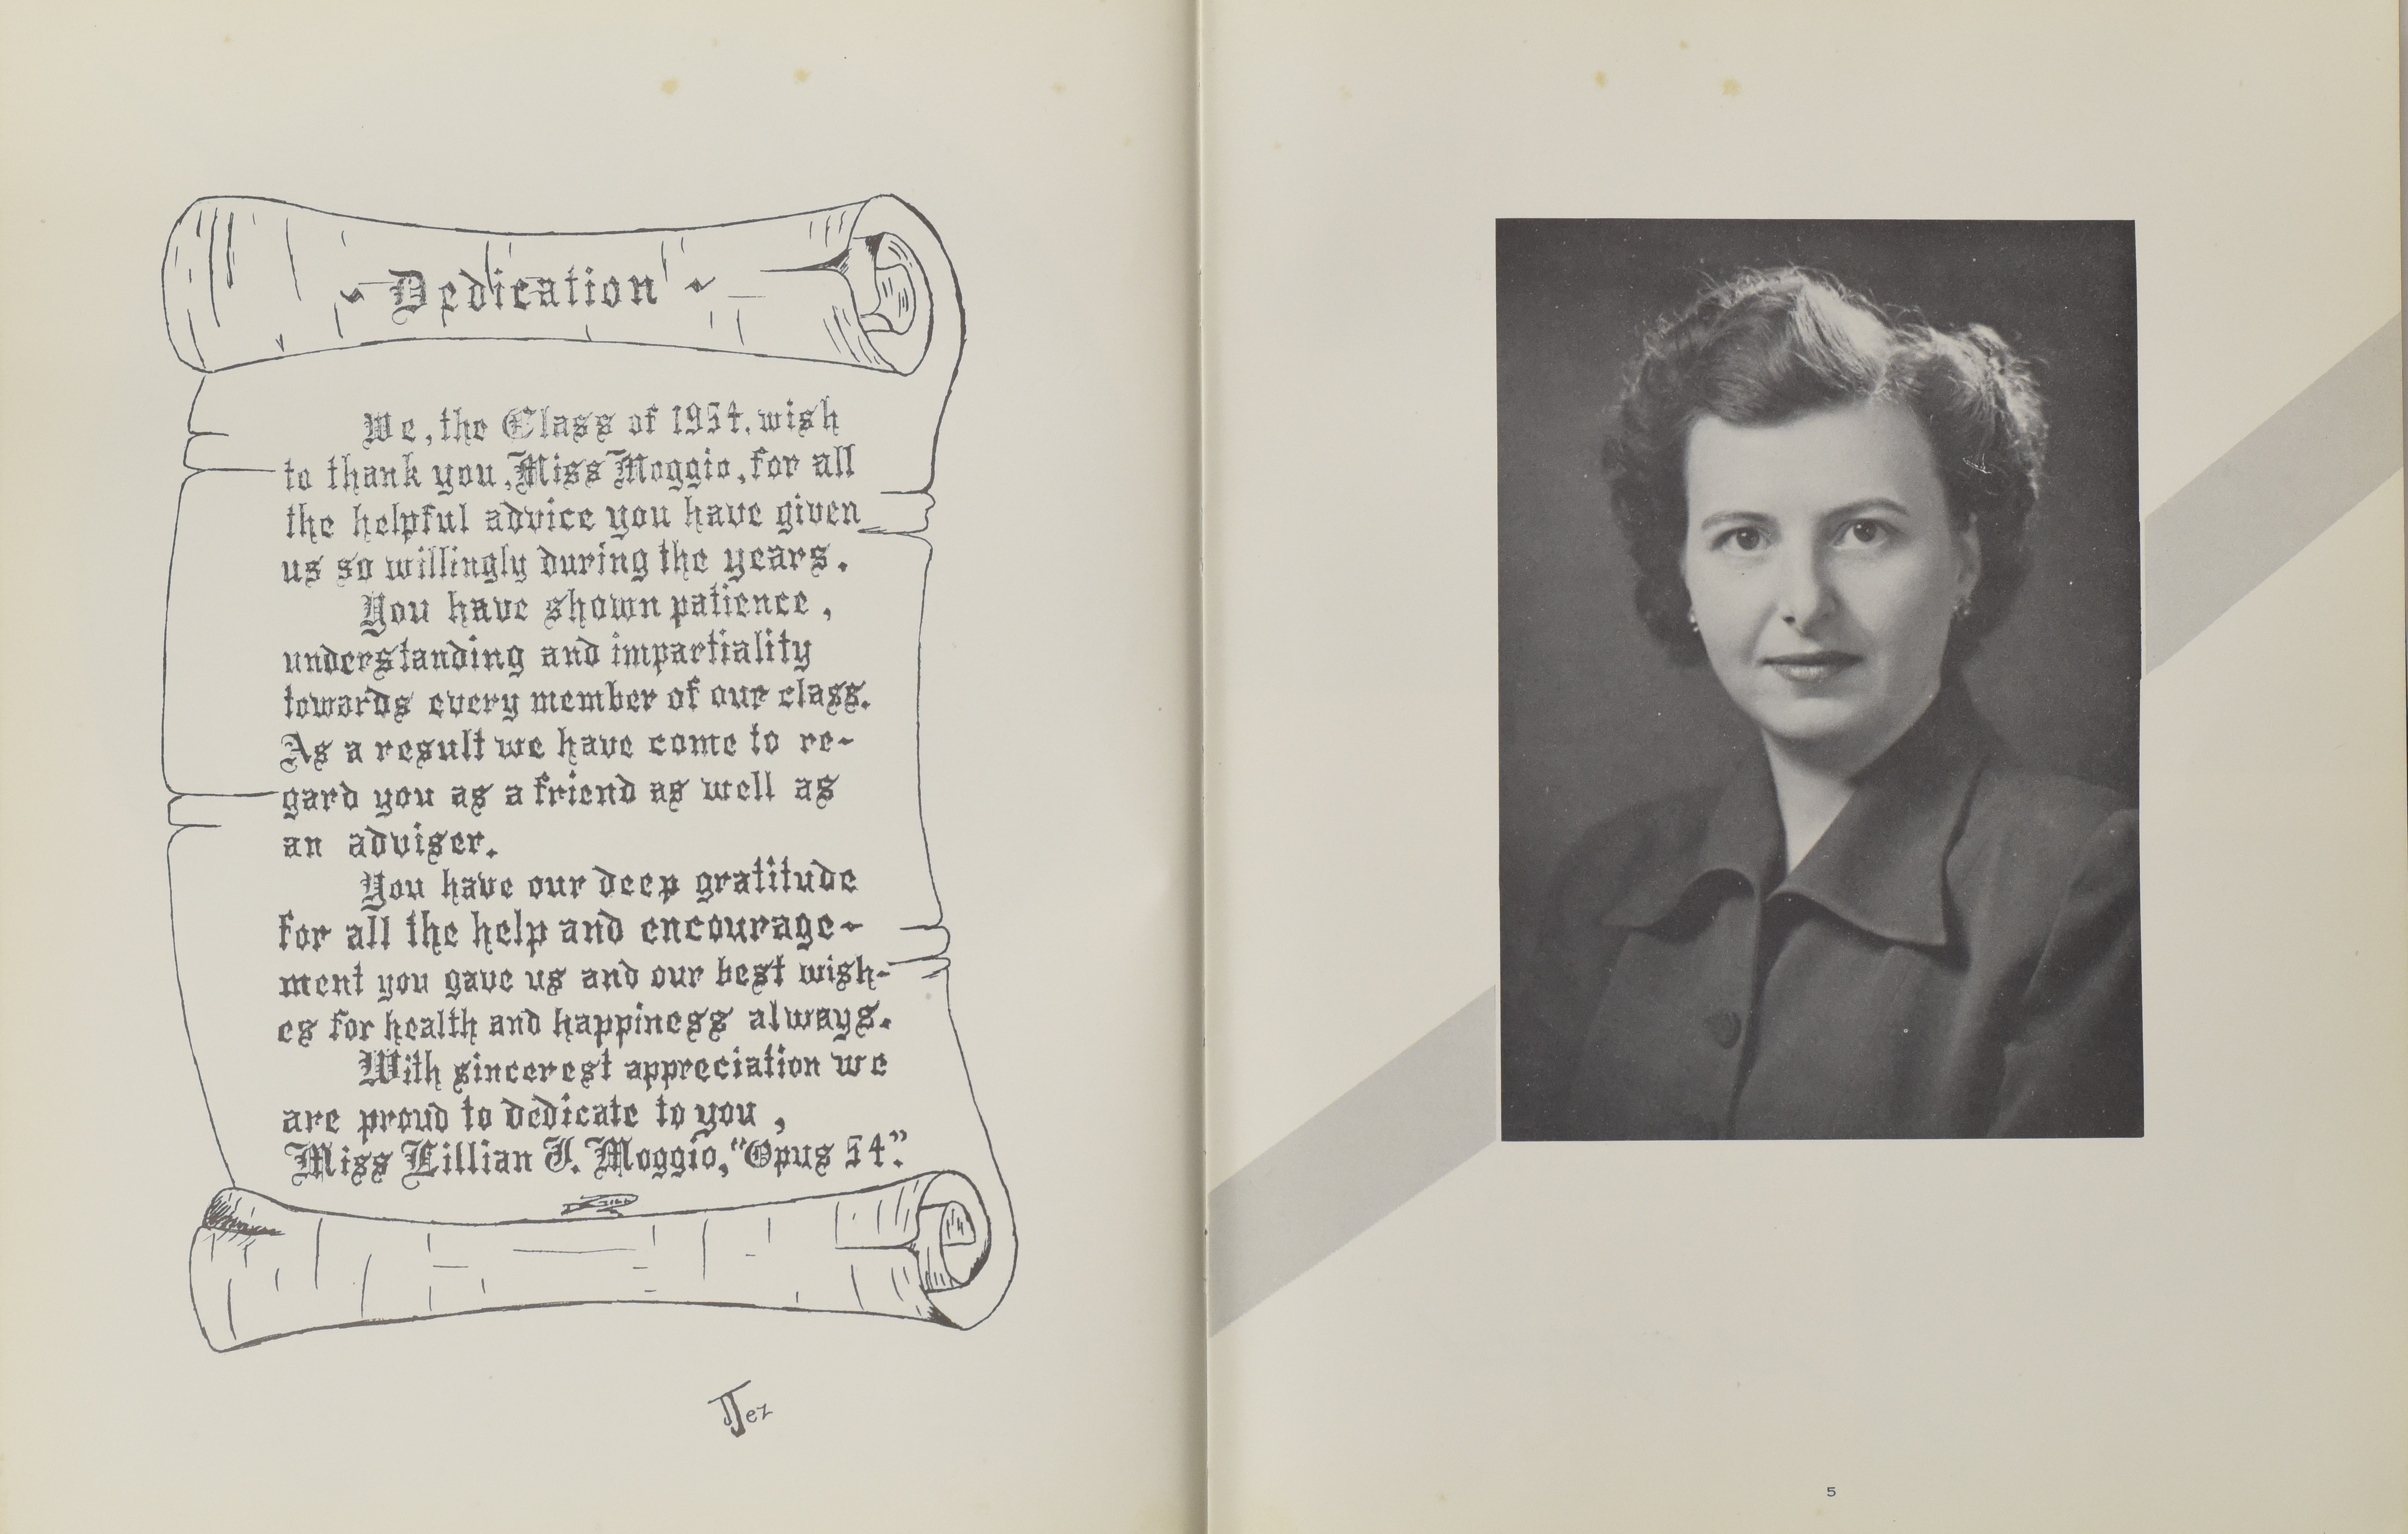 Dedication
We, the Class of 1954, wish
to thank you, Miss Moggio, for all
the helpful advice you have given
us so willingly during the years.
You have shown patience,
understanding and impartiality
towards every member of our class.
As a result we have come to re-
gard you as a friend as well as
an adviser.
You have our deep gratitude
for all the help and encourage-
ment you gave us and our best wish-
es for health and happiness always.
With sincerest appreciation we
are proud to dedicate to you,
Miss Lillian J. Moggio, "Opus 54".
5